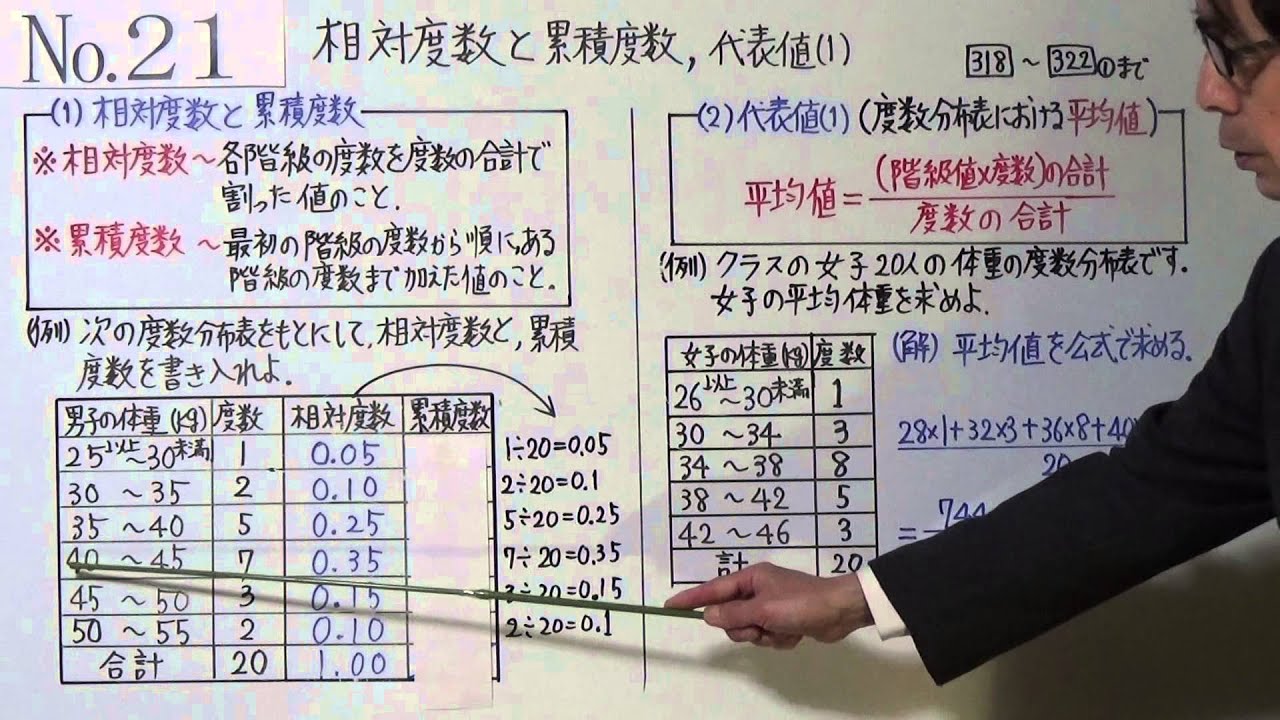 No.21
相対度数と累積度数, 代表値(1)
318 ～ 322 ①まで
(1) 相対度数と累積度数
※相対度数～各階級の度数を度数の合計で
割った値のこと.
※累積度数～最初の階級の度数から順に,ある
階級の度数まで加えた値のこと.
(例) 次の度数分布表をもとにして,相対度数と,累積
度数を書き入れよ.
男子の体重(kg) 度数 相対度数 累積度数
25以上～30未満 1 0.05 1÷20=0.05
30 ～35 2 0.10 2÷20=0.1
35 ～40 5 0.25 5÷20=0.25
40 ～45 7 0.35 7÷20=0.35
45 ～50 3 0.15 3÷20=0.15
50 ～55 2 0.10 2÷20=0.1
合計 20 1.00
(2)代表値(1) (度数分布表における平均値)
平均値=
(階級値×度数)の合計
度数の合計
(例) クラスの女子20人の体重の度数分布表です.
女子の平均体重を求めよ.
女子の体重(kg) 度数
26以上～30未満 1
30 ～34 3
34 ～38 8
38 ～42 5
42 ～46 3
計 20
(解) 平均値を公式で求める.
28×1+32×3+36×8+40
20
= 744